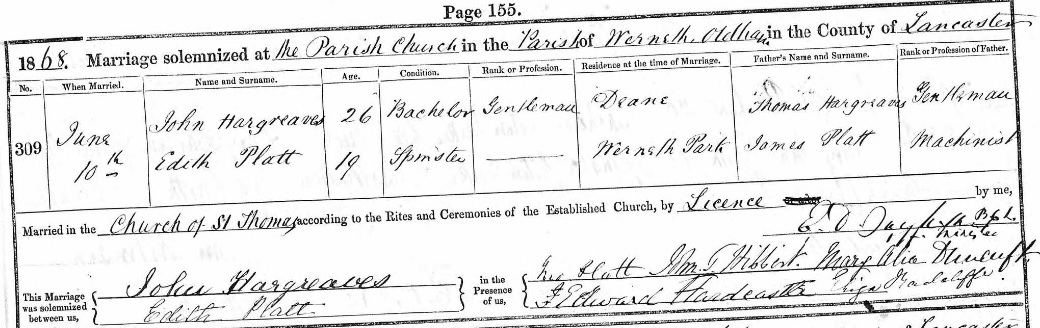 Page 155.
1868. Marriage solemnized at the Parish Church in the Parish of Werneth, Oldham in the County of Lancaster
No. When Married. Name and Surname. Age. Condition. Rank or Profession. Residence at the time of Marriage. Father's Name and Surname. Rank or Profession of Father.
309 June 10th John Hargreaves 26 Bachelor Gentleman Deane Thomas Hargreaves Gentleman
Edith Platt 19 Spinster Werneth Park James Platt Machinist
Married in the Church of St Thomas according to the Rites and Ceremonies of the Established Church, by Licence by me,
This Marriage was solemnized between us,
John Hargreaves
Edith Platt
in the Presence of us,
Platt Jno. G Hibbert Mary Alice
Edward Hardcastle Radcliffe
Lancaster